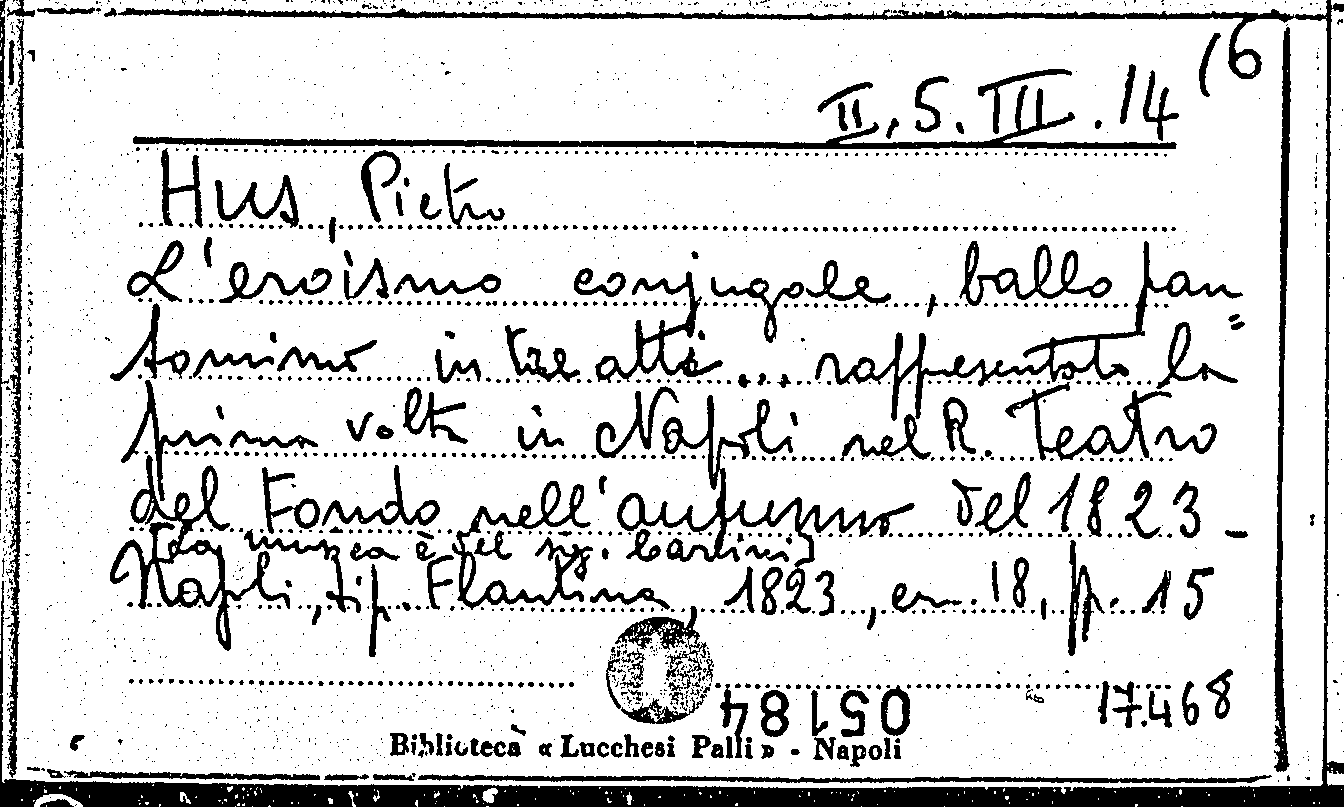 II. 5. III. 14 (6
Hus, Pietro
L'eroismo conjugale, ballo pan=
tomimo in tre atti... rappresentato la
prima volta in Napoli nel R. Teatro
del Fondo nell'autunno del 1823 -
[La musica è del sig. Carlini]
Napoli, tip. Flautina, 1823, cm. 18, pp. 15
05184
17.468
Biblioteca « Lucchesi Palli » - Napoli